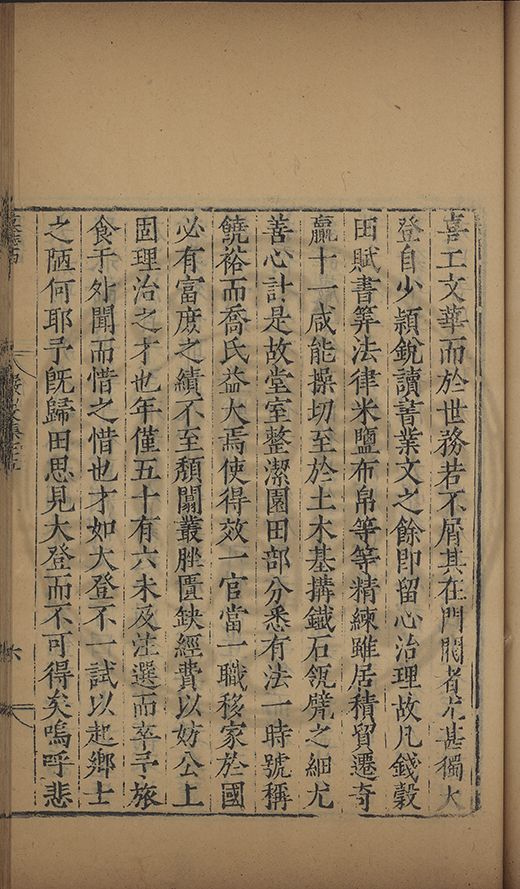 喜工文華而於世務若不屑其在門閥者尤甚獨大
登自少穎銳讀書業文之餘即留心治理故凡錢穀
田賦書算法律米鹽布帛等等精練雖居積貿遷奇
贏十一咸能操切至於土木基搆鐵石瓴甓之細尤
善心計是故堂室整潔園田部分悉有法一時號稱
饒裕而喬氏益大焉使得效一官當一職移家於國
必有富庶之績不至頹闒叢脞匱缺經費以妨公上
固理治之才也年僅五十有六未及注選而卒予旅
食于外聞而惜之惜也才如大登不一試以起鄉士
之陋何耶予既歸田思見大登而不可得矣嗚呼悲
六